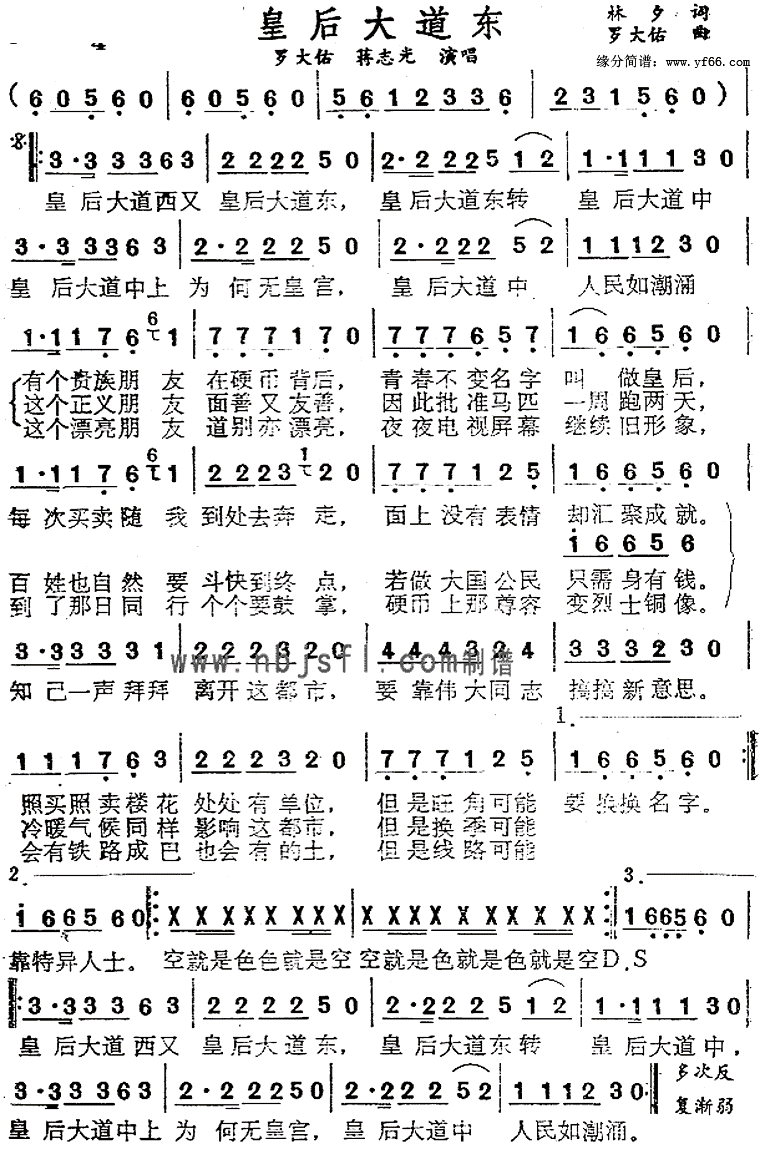 皇后大道东
林夕 词
罗大佑 曲
罗大佑 蒋志光 演唱
缘分简谱：www.yf66.com
4
( 6 0 5 6 0 | 6 0 5 6 0 | 5 6 1 2 3 3 6 | 2 3 1 5 6 0 ) |
3·3 3 3 6 3 | 2 2 2 2 5 0 | 2·2 2 2 5 1 2 | 1·1 1 1 3 0 |
皇后大道西又 皇后大道东， 皇后大道东转 皇后大道中
3·3 3 3 6 3 | 2·2 2 2 5 0 | 2·2 2 2 5 2 | 1 1 1 2 3 0 |
皇后大道中上 为何无皇宫， 皇后大道中 人民如潮涌
1·1 1 7 6 6 1 | 7 7 7 1 7 0 | 7 7 7 6 5 7 | 1 6 6 5 6 0 |
有个贵族朋友 在硬币背后， 青春不变名字 叫 做皇后，
这个正义朋友 面善又友善， 因此批准马匹 一周跑两天，
这个漂亮朋友 道别亦漂亮， 夜夜电视屏幕 继续旧形象，
1·1 1 7 6 6 1 | 2 2 2 3 1 2 0 | 7 7 7 1 2 5 | 1 6 6 5 6 0 |
每次买卖随我 到处去奔走， 面上没有表情 却汇聚成就。
1 6 6 5 6
百姓也自然要 斗快到终点， 若做大国公民 只需身有钱。
到了那日同行 个个要鼓掌， 硬币上那尊容 变烈士铜像。
3·3 3 3 3 1 | 2 2 2 3 2 0 | 4 4 4 3 2 4 | 3 3 3 2 3 0 |
www.nbjsfl.com制谱
知己一声拜拜 离开这都市， 要靠伟大同志 搞搞新意思。
1.
1 1 1 7 6 3 | 2 2 2 3 2 0 | 7 7 7 1 2 5 | 1 6 6 5 6 0 :|
照买照卖楼花 处处有单位， 但是旺角可能 要换换名字。
冷暖气候同样 影响这都市， 但是换季可能
会有铁路成巴 也会有的士， 但是线路可能
2. 3.
1 6 6 5 6 0 :|: X X X X X X X X | X X X X X X X X :| 1 6 6 5 6 0 |
靠特异人士。 空就是色色就是空 空就是色就是色就是空 D.S
|: 3·3 3 3 6 3 | 2 2 2 2 5 0 | 2·2 2 2 5 1 2 | 1·1 1 1 3 0 |
皇后大道西又 皇后大道东， 皇后大道东转 皇后大道中，
3·3 3 3 6 3 | 2·2 2 2 5 0 | 2·2 2 2 5 2 | 1 1 1 2 3 0 :| 多次反
复渐弱
皇后大道中上 为何无皇宫， 皇后大道中 人民如潮涌。